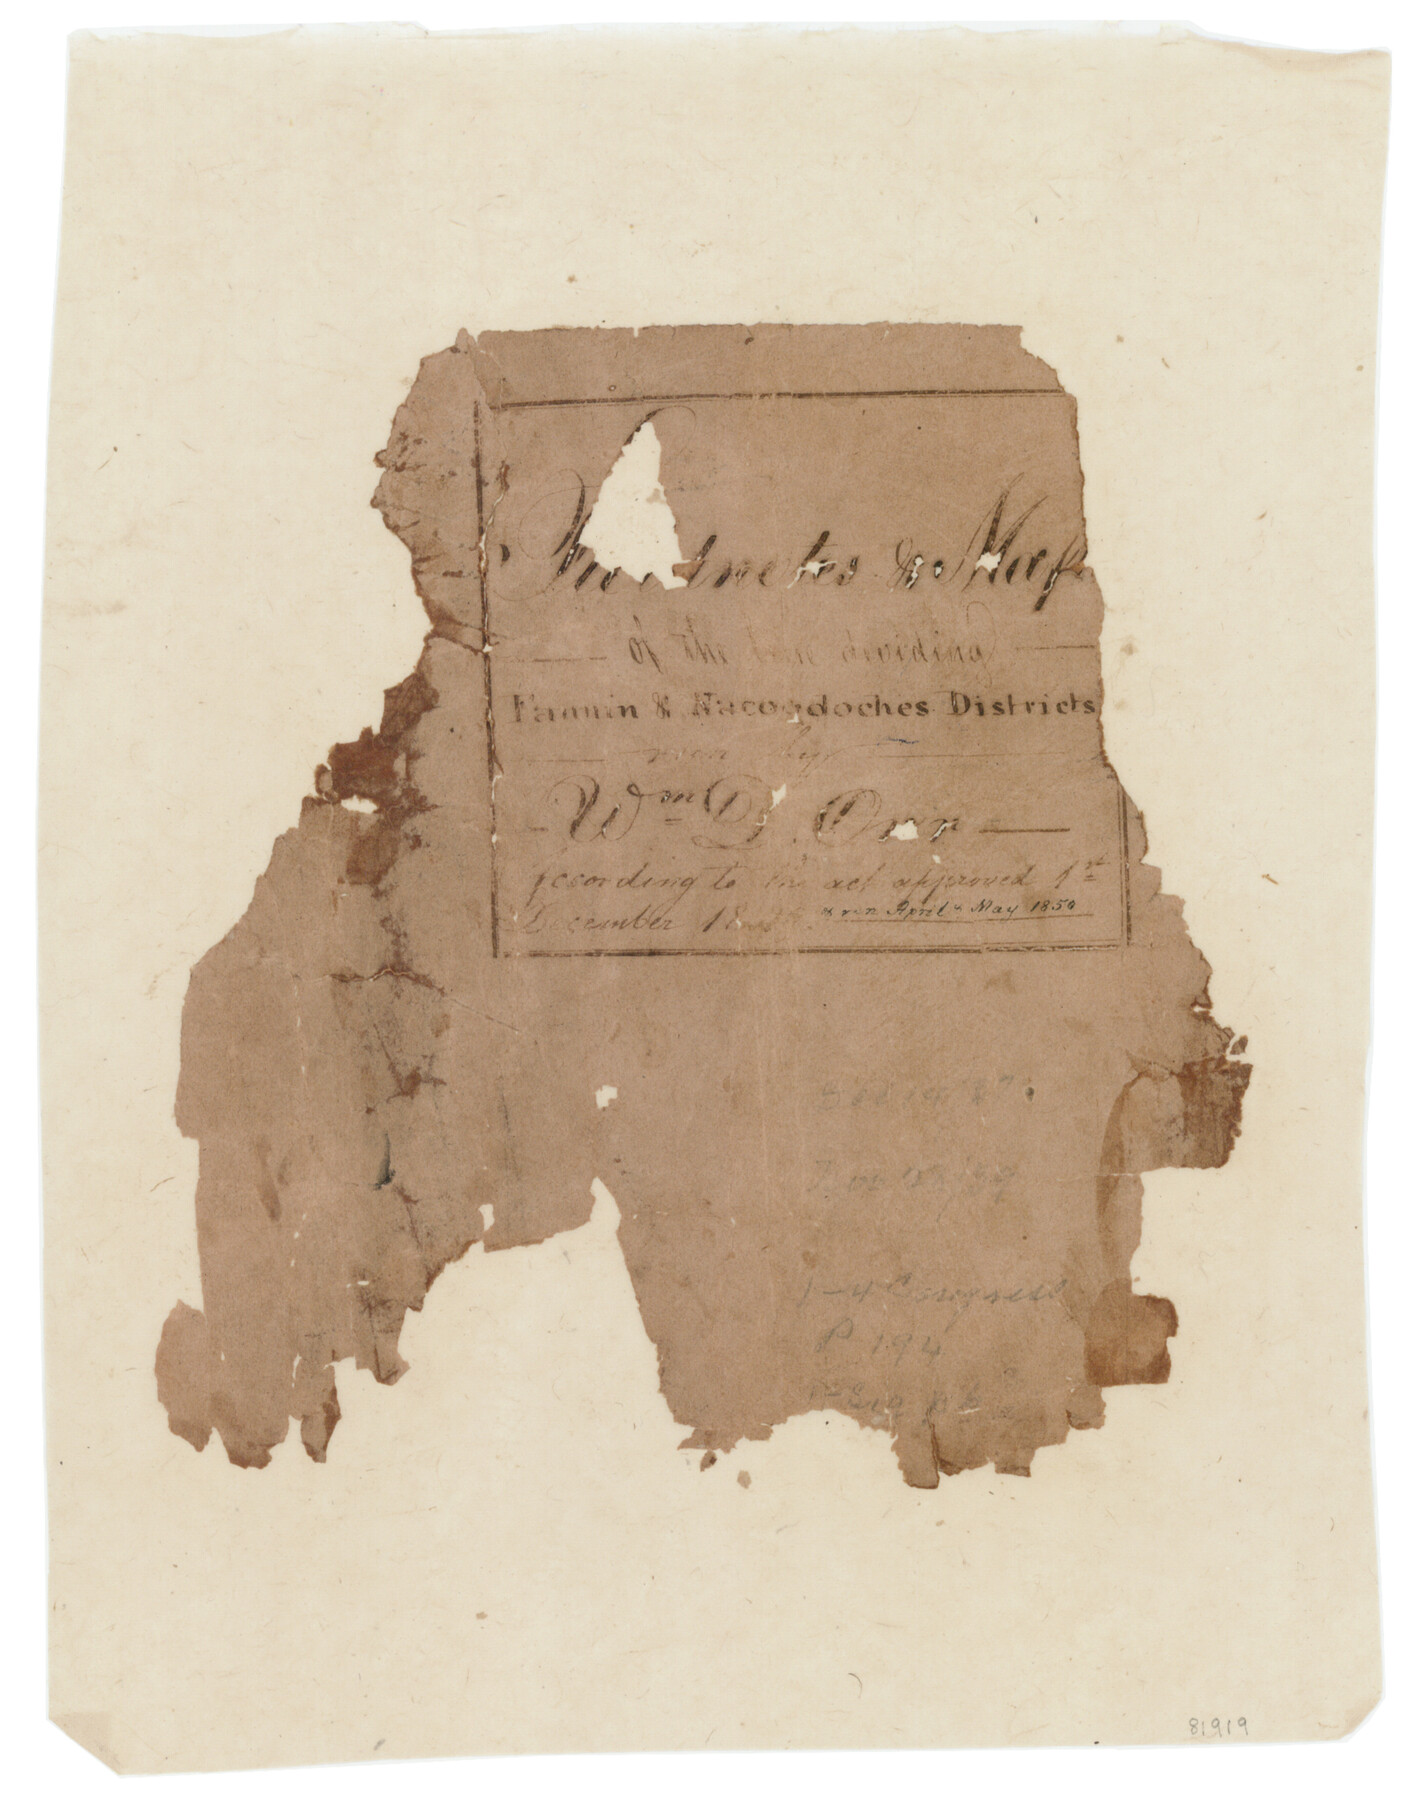 Fieldnotes & Map
of the line dividing
Fannin & Nacogdoches Districts
run by
Wm D. Orr
According to the act approved 1st
December 18 & run April & May 1850
1-4 Congress
P 194
81919